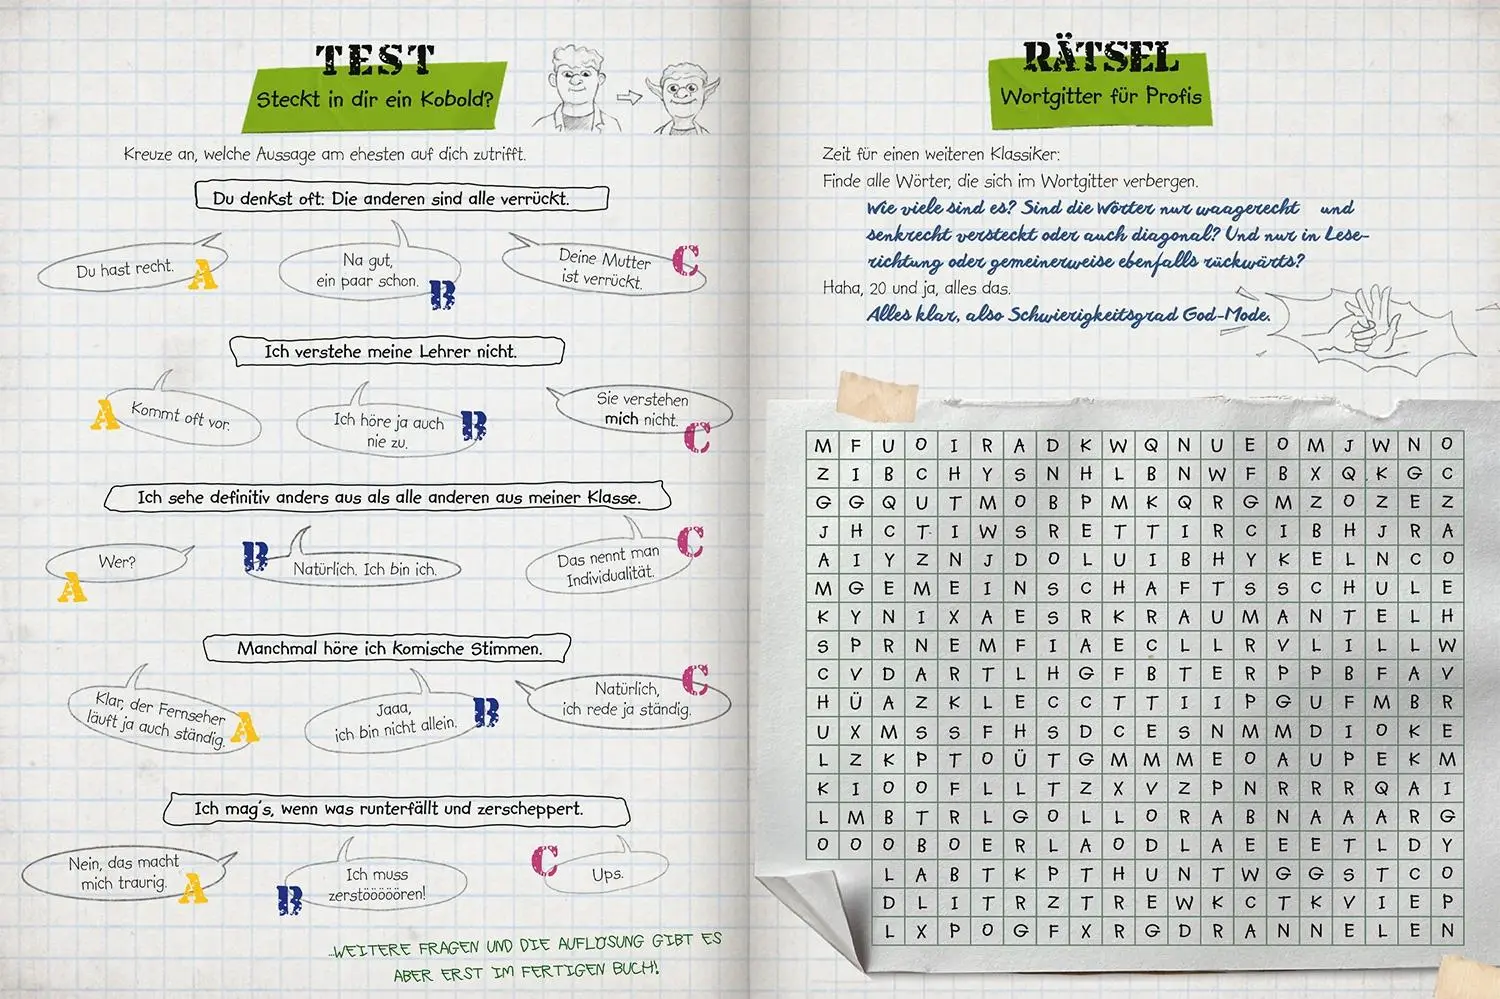 TEST
Steckt in dir ein Kobold?
Kreuze an, welche Aussage am ehesten auf dich zutrifft.
Du denkst oft: Die anderen sind alle verrückt.
Du hast recht.
A
Na gut,
ein paar schon.
B
Deine Mutter
ist verrückt.
C
Ich verstehe meine Lehrer nicht.
A
Kommt oft vor.
Ich höre ja auch
nie zu.
B
Sie verstehen
mich nicht.
C
Ich sehe definitiv anders aus als alle anderen aus meiner Klasse.
Wer?
A
B
Natürlich. Ich bin ich.
Das nennt man
Individualität.
C
Manchmal höre ich komische Stimmen.
Klar, der Fernseher
läuft ja auch ständig.
A
Jaaa,
ich bin nicht allein.
B
Natürlich,
ich rede ja ständig.
C
Ich mag's, wenn was runterfällt und zerscheppert.
Nein, das macht
mich traurig.
A
B
Ich muss
zerstöööööören!
C
Ups.
...WEITERE FRAGEN UND DIE AUFLÖSUNG GIBT ES
ABER ERST IM FERTIGEN BUCH!
RÄTSEL
Wortgitter für Profis
Zeit für einen weiteren Klassiker:
Finde alle Wörter, die sich im Wortgitter verbergen.
Wie viele sind es? Sind die Wörter nur waagerecht und
senkrecht versteckt oder auch diagonal? Und nur in Lese-
richtung oder gemeinerweise ebenfalls rückwärts?
Haha, 20 und ja, alles das.
Alles klar, also Schwierigkeitsgrad God-Mode.
M F U O I R A D K W Q N U E O M J W N O
Z I B C H Y S N H L B N W F B X Q K G C
G G Q U T M O B P M K Q R G M Z O Z E Z
J H C T I W S R E T T I R C I B H J R A
A I Y Z N J D O L U I B H Y K E L N C O
M G E M E I N S C H A F T S S C H U L E
K Y N I X A E S R K R A U M A N T E L H
S P R N E M F I A E C L L R V L I L L W
C V D A R T L H G F B T E R P P B F A V
H Ü A Z K L E C C T T I I P G U F M B R
U X M S S F H S D C E S N M M D I O K E
L Z K P T O Ü T G M M M E O A U P E K M
K I O O F L L T Z X V Z P N R R R Q A I
L M B T R L G O L L O R A B N A A A R G
O O O B O E R L A O D L A E E E T L D Y
L A B T K P T H U N T W G G S T C O
D L I T R Z T R E W K C T K V I E P
L X P O G F X R G D R A N N E L E N